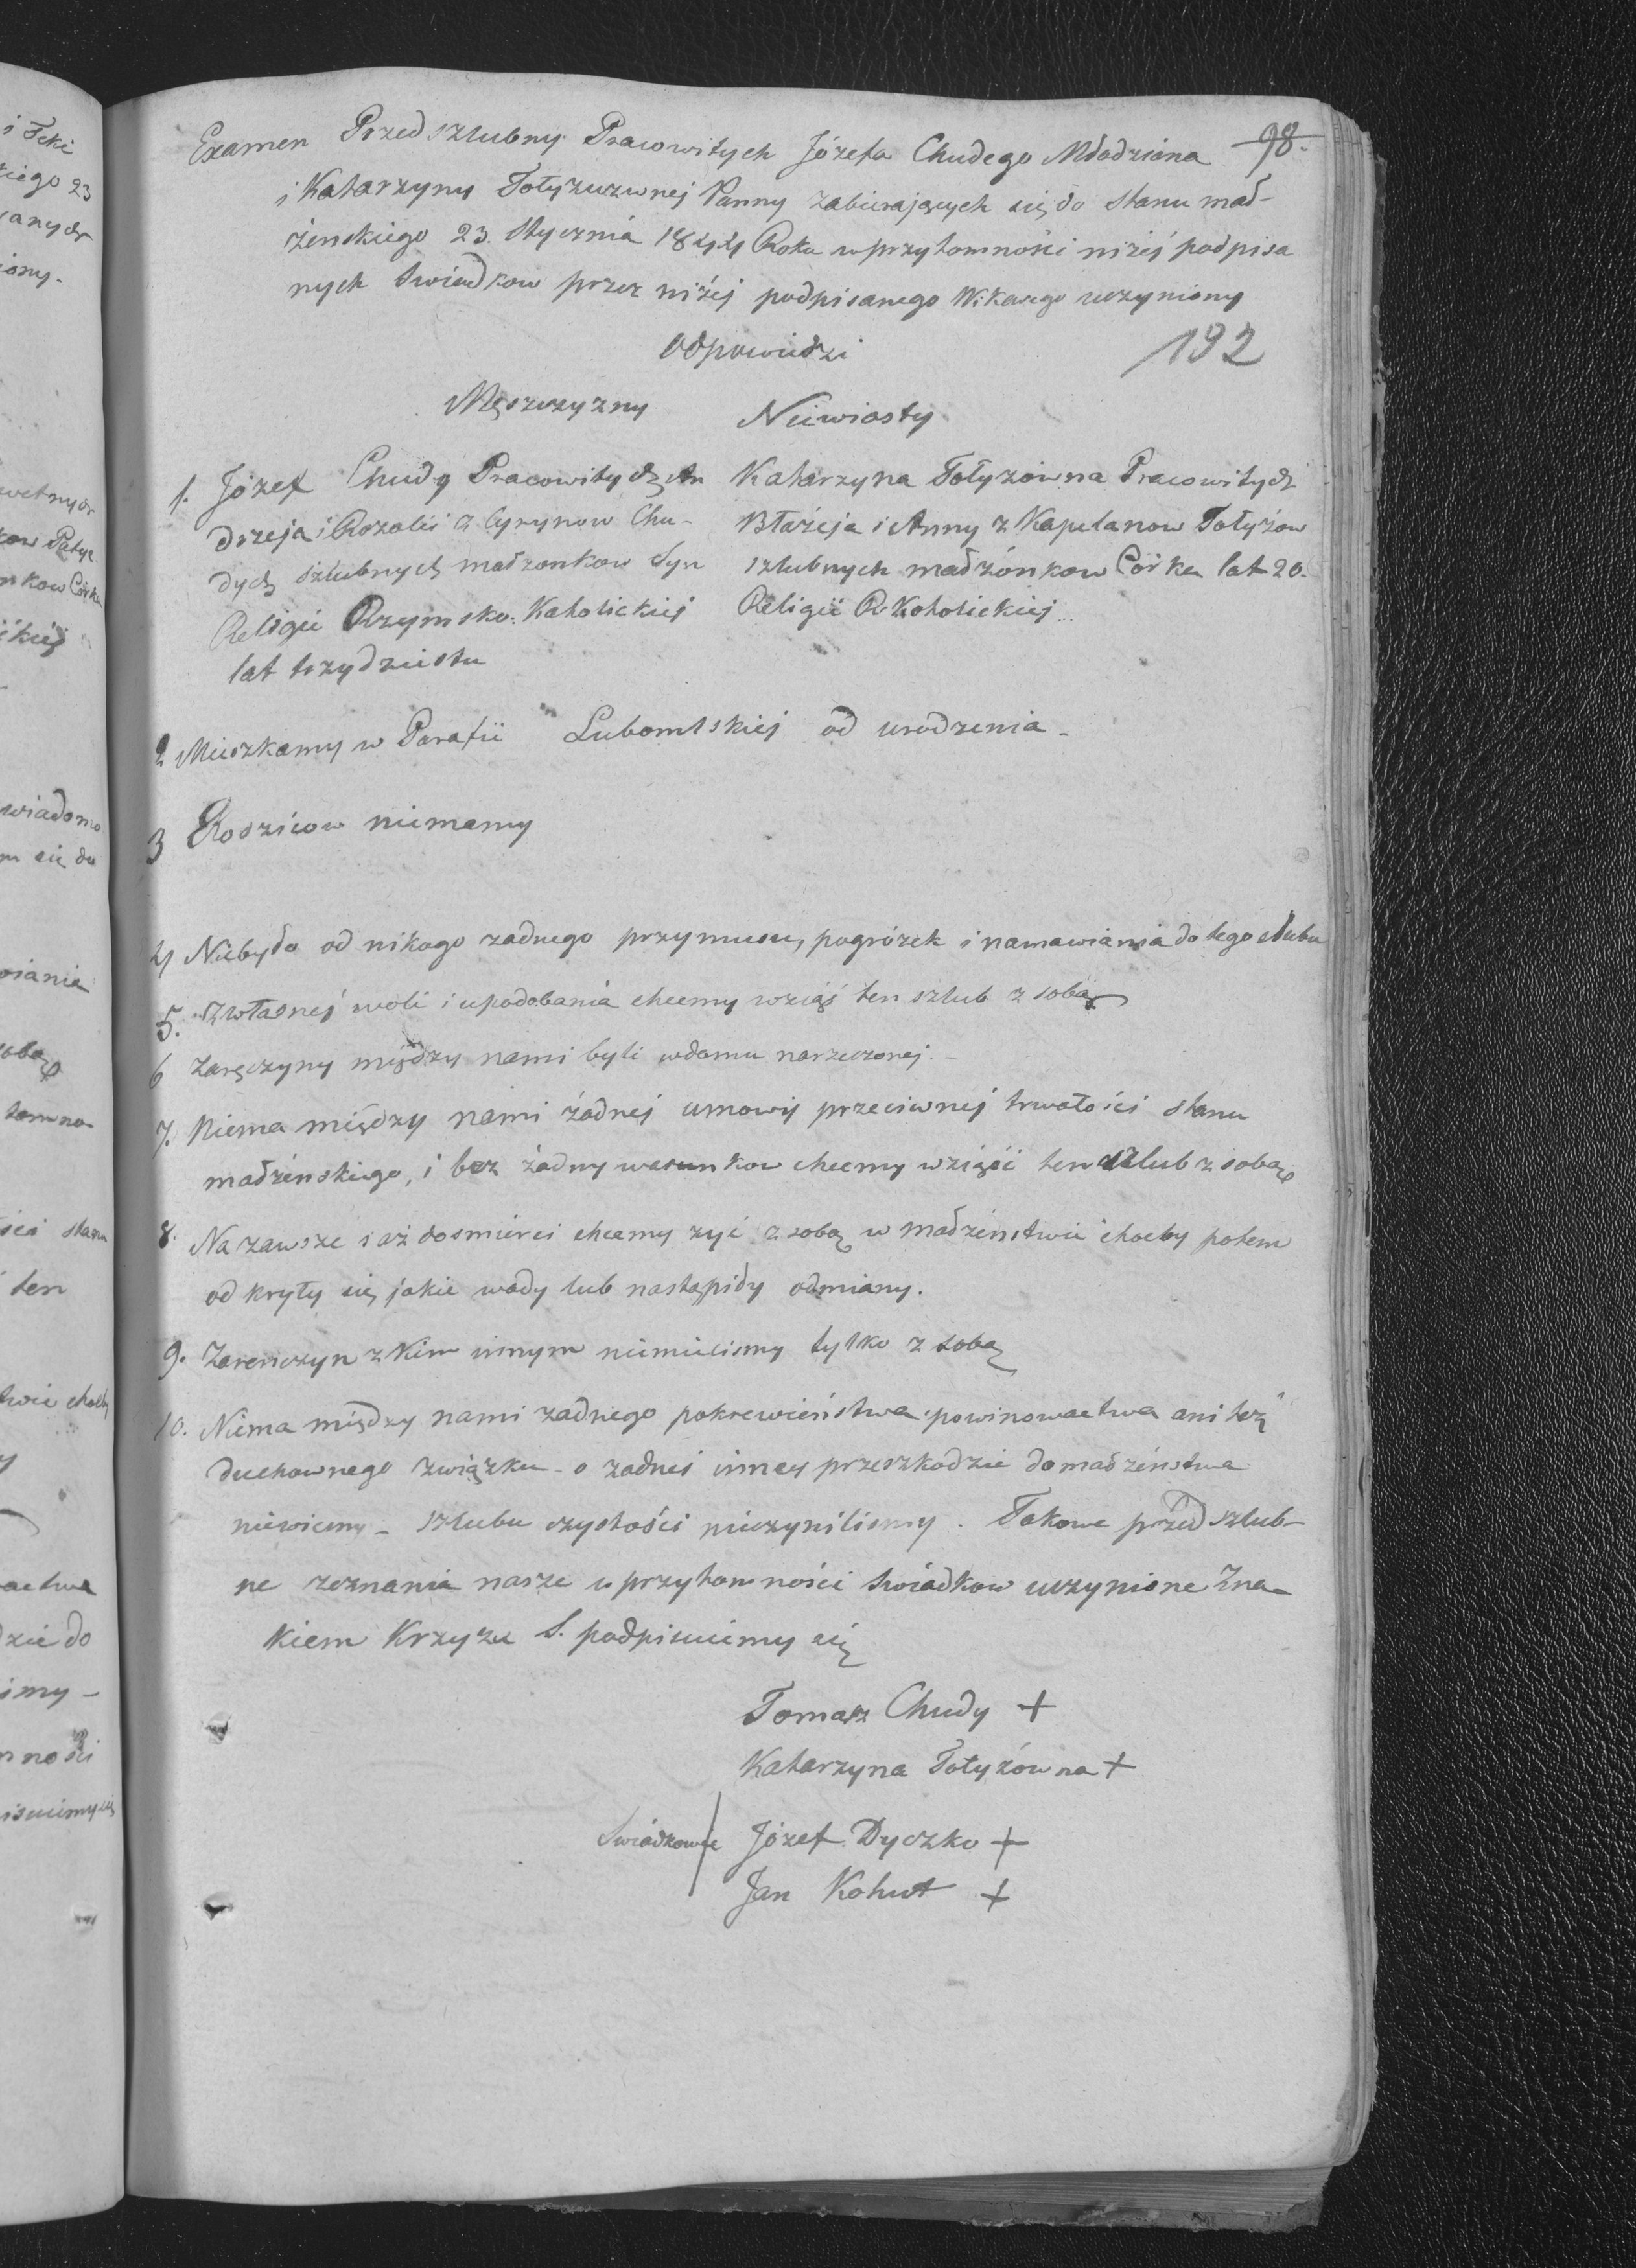 Examen Przedszlubny Pracowitych Józefa Chudego Młodziana 98.
i Katarzyny Tołyzuwnej Panny zabierających się do stanu mał-
żenskiego 23. Stycznia 1844 Roku w przytomności niżej podpisa
nych Swiadkow przez niżej podpisanego Wikarego uczyniony
Odpowiedzi 192
Męszczyzny Niewiasty
1. Józef Chudy Pracowitych An
drzeja i Rozalii z Cyrynow Chu-
dych szlubnych małzonkow Syn
Religii Rzymsko-Katolickiej
lat trzydziestu
Katarzyna Tołyzówna Pracowitych
Błażeja i Anny z Kapelanow Tołyżow
szlubnych małżónkow Córka lat 20.
Religii R Katolickiej
2 Mieszkamy w Parafii Lubomlskiej od urodzenia -
3 Rodziców niemamy
4 Niebyło od nikogo zadnego przymusu, pogrózek i namawiania do tego slubu
5. Z własnej woli i upodobania chcemy wziąść ten szlub z sobą
6 Zaręczyny między nami byli w domu narzeczonej. -
7. Niema między nami żadnej umowy przeciwnej trwałości stanu
małżeńskiego, i bez żadny warunkow chcemy wziąść ten szlub z sobą
8. Na zawsze i aż do smierci chcemy zyć z sobą w małżeństwie choćby potem
odkryły się jakie wady lub nastąpiły odmiany.
9. Zarenczyn z kim innym niemielismy tylko z sobą
10. Niema między nami zadnego pokrewieństwa powinowactwa ani też
duchownego związku - o zadnei inney przeszkodzie do małżeństwa
niewiemy - szlubu czystości nieczynilismy. Takowe przed szlub-
ne zeznania nasze w przytomności swiadkow uczynione zna-
kiem Krzyza S. podpisuiemy się
Tomasz Chudy +
Katarzyna Tołyzówna +
Swiadkowie Józef Dyczko +
Jan Kohut +